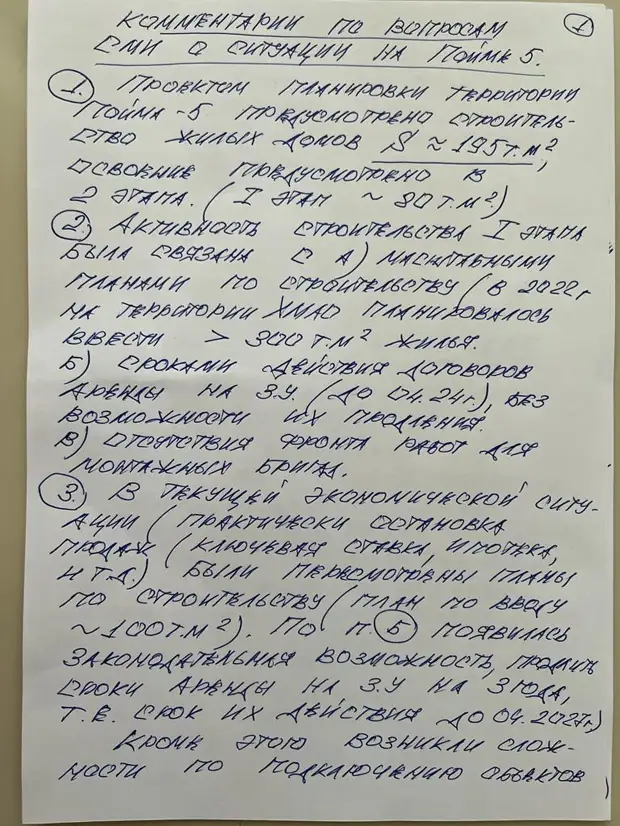 КОММЕНТАРИИ ПО ВОПРОСАМ 1
СМИ О СИТУАЦИИ НА ПОЙМЕ 5.
1. ПРОЕКТОМ ПЛАНИРОВКИ ТЕРРИТОРИИ
ПОЙМА-5 ПРЕДУСМОТРЕНО СТРОИТЕЛЬ-
СТВО ЖИЛЫХ ДОМОВ S ≈ 195 Т.М²,
ОСВОЕНИЕ ПРЕДУСМОТРЕНО В
2 ЭТАПА. (I ЭТАП ~ 80 Т.М²)
2. АКТИВНОСТЬ СТРОИТЕЛЬСТВА I ЭТАПА
БЫЛА СВЯЗАНА С А) МАСШТАБНЫМИ
ПЛАНАМИ ПО СТРОИТЕЛЬСТВУ (В 2022г
НА ТЕРРИТОРИИ ХМАО ПЛАНИРОВАЛОСЬ
ВВЕСТИ > 300 Т.М² ЖИЛЬЯ.
Б) СРОКАМИ ДЕЙСТВИЯ ДОГОВОРОВ
АРЕНДЫ НА З.У. (ДО 04.24г.), БЕЗ
ВОЗМОЖНОСТИ ИХ ПРОДЛЕНИЯ.
В) ОТСУТСТВИЯ ФРОНТА РАБОТ ДЛЯ
МОНТАЖНЫХ БРИГАД.
3. В ТЕКУЩЕЙ ЭКОНОМИЧЕСКОЙ СИТУ-
АЦИИ (ПРАКТИЧЕСКИ ОСТАНОВКА
ПРОДАЖ (КЛЮЧЕВАЯ СТАВКА, ИПОТЕКА,
И Т.Д.) БЫЛИ ПЕРЕСМОТРЕНЫ ПЛАНЫ
ПО СТРОИТЕЛЬСТВУ (ПЛАН ПО ВВОДУ
~100 Т.М²). ПО П. Б ПОЯВИЛАСЬ
ЗАКОНОДАТЕЛЬНАЯ ВОЗМОЖНОСТЬ, ПРОДЛИТЬ
СРОКИ АРЕНДЫ НА З.У НА 3 ГОДА,
Т.Е. СРОК ИХ ДЕЙСТВИЯ ДО 04.2027г.)
КРОМЕ ЭТОГО ВОЗНИКЛИ СЛОЖ-
НОСТИ ПО ПОДКЛЮЧЕНИЮ ОБЪЕКТОВ